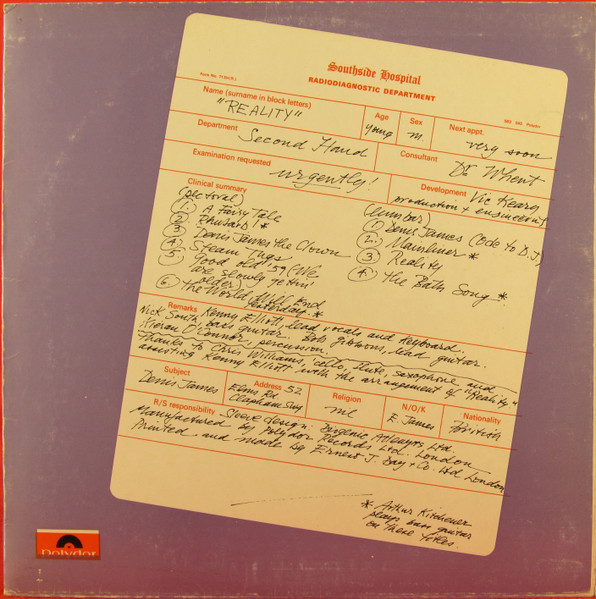 Southside Hospital
RADIODIAGNOSTIC DEPARTMENT
Name (surname in block letters)
"REALITY"
Age
Young
Sex
m.
Next appt.
very soon
Department
Second Hand
Consultant
Dr Whent
Examination requested
urgently!
Development Vic Keary
production + engineering
Clinical summary
(pectoral)
1. A Fairy Tale
2 Rhubarb! *
3. Denis James the Clown
4. Steam Tugs
5 Good old '59 (We
are slowly gettin'
older)
6. The World Will End
Yesterday. *
(lumbar)
1 Denis James (Ode to D.J)
2. Mainliner *
3. Reality
4. The Bath Song *
Remarks Kenny Elliott, lead vocals and keyboard.
Nick South, bass guitar. Bob Gibbons, lead guitar.
Kieran O'Connor, percussion.
Thanks to Chris Williams, cello, flute, saxophone and
assisting Kenny Elliott with the arrangement of "Reality."
Subject
Denis James
Address 52
Elms Rd
Clapham
Religion
nil
N/O/K
E. James
Nationality
British
R/S responsibility Sleeve design:
Manufactured by Polydor Records Ltd. London
Printed and made by Ernest J. Day + Co. Ltd London
* Arthur Kitchener
plays bass guitar
on these titles.
Polydor